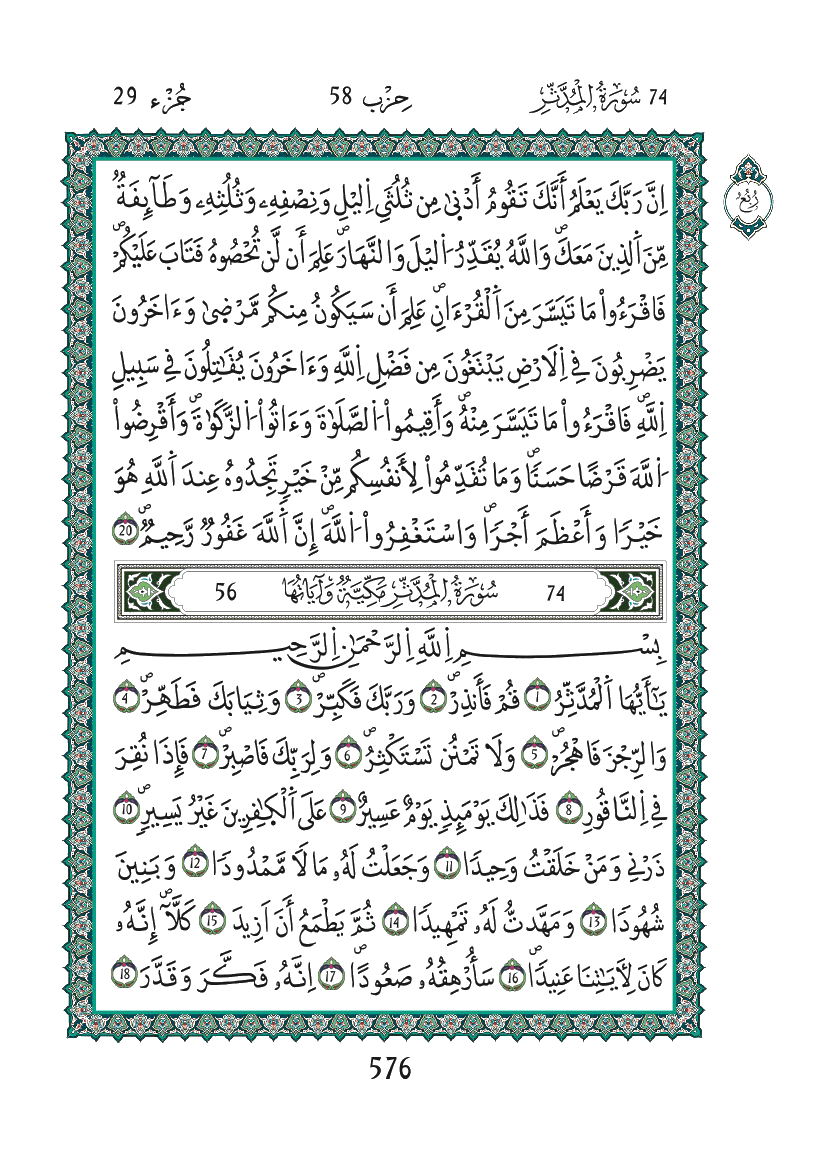 74 سُورَةُ الْمُدَّثِّرِ
حِزْب 58
جُزْء 29
رُبُع
اِنَّ رَبَّكَ يَعْلَمُ أَنَّكَ تَقُومُ أَدْنىٰ مِن ثُلُثَيِ اِ۬ليْلِ وَنِصْفِهِۦ وَثُلُثِهِۦ وَطَآئِفَةٞ
مِّنَ اَ۬لذِينَ مَعَكَۖ وَاللَّهُ يُقَدِّرُ اُ۬ليْلَ وَالنَّهَارَۖ عَلِمَ أَن لَّن تُحْصُوهُ فَتَابَ عَلَيْكُمْۖ
فَاقْرَءُواْ مَا تَيَسَّرَ مِنَ اَ۬لْقُرْءَانِۖ عَلِمَ أَن سَيَكُونُ مِنكُم مَّرْضىٰ وَءَاخَرُونَ
يَضْرِبُونَ فِي اِ۬لَارْضِ يَبْتَغُونَ مِن فَضْلِ اِ۬للَّهِ وَءَاخَرُونَ يُقَٰتِلُونَ فِي سَبِيلِ
اِ۬للَّهِۖ فَاقْرَءُواْ مَا تَيَسَّرَ مِنْهُۖ وَأَقِيمُواْ اُ۬لصَّلَوٰةَ وَءَاتُواْ اُ۬لزَّكَوٰةَۖ وَأَقْرِضُواْ
اُ۬للَّهَ قَرْضًا حَسَنٗاۖ وَمَا تُقَدِّمُواْ لِأَنفُسِكُم مِّنْ خَيْرٖ تَجِدُوهُ عِندَ اَ۬للَّهِ هُوَ
خَيْرٗا وَأَعْظَمَ أَجْرٗاۖ وَاسْتَغْفِرُواْ اُ۬للَّهَۖ إِنَّ اَ۬للَّهَ غَفُورٞ رَّحِيمٞۖ 20
74 سُورَةُ الْمُدَّثِّرِ مَكِّيَّةٌ وَآيَاتُهَا 56
بِسْمِ اِ۬للَّهِ اِ۬لرَّحْمَٰنِ اِ۬لرَّحِيمِ
يَٰٓأَيُّهَا اَ۬لْمُدَّثِّرُ 1 قُمْ فَأَنذِرْۖ 2 وَرَبَّكَ فَكَبِّرْۖ 3 وَثِيَابَكَ فَطَهِّرْۖ 4
وَالرِّجْزَ فَاهْجُرْۖ 5 وَلَا تَمْنُن تَسْتَكْثِرُۖ 6 وَلِرَبِّكَ فَاصْبِرْۖ 7 فَإِذَا نُقِرَ
فِي اِ۬لنَّاقُورِ 8 فَذَٰلِكَ يَوْمَئِذٖ يَوْمٌ عَسِيرٌ 9 عَلَى اَ۬لْكٰ۪فِرِينَ غَيْرُ يَسِيرٖۖ 10
ذَرْنِي وَمَنْ خَلَقْتُ وَحِيدٗا 11 وَجَعَلْتُ لَهُۥ مَالٗا مَّمْدُودٗا 12 وَبَنِينَ
شُهُودٗا 13 وَمَهَّدتُّ لَهُۥ تَمْهِيدٗا 14 ثُمَّ يَطْمَعُ أَنَ اَزِيدَ 15 كَلَّآۖ إِنَّهُۥ
كَانَ لِأٓيَٰتِنَا عَنِيدٗاۖ 16 سَأُرْهِقُهُۥ صَعُودًاۖ 17 اِنَّهُۥ فَكَّرَ وَقَدَّرَ 18
576